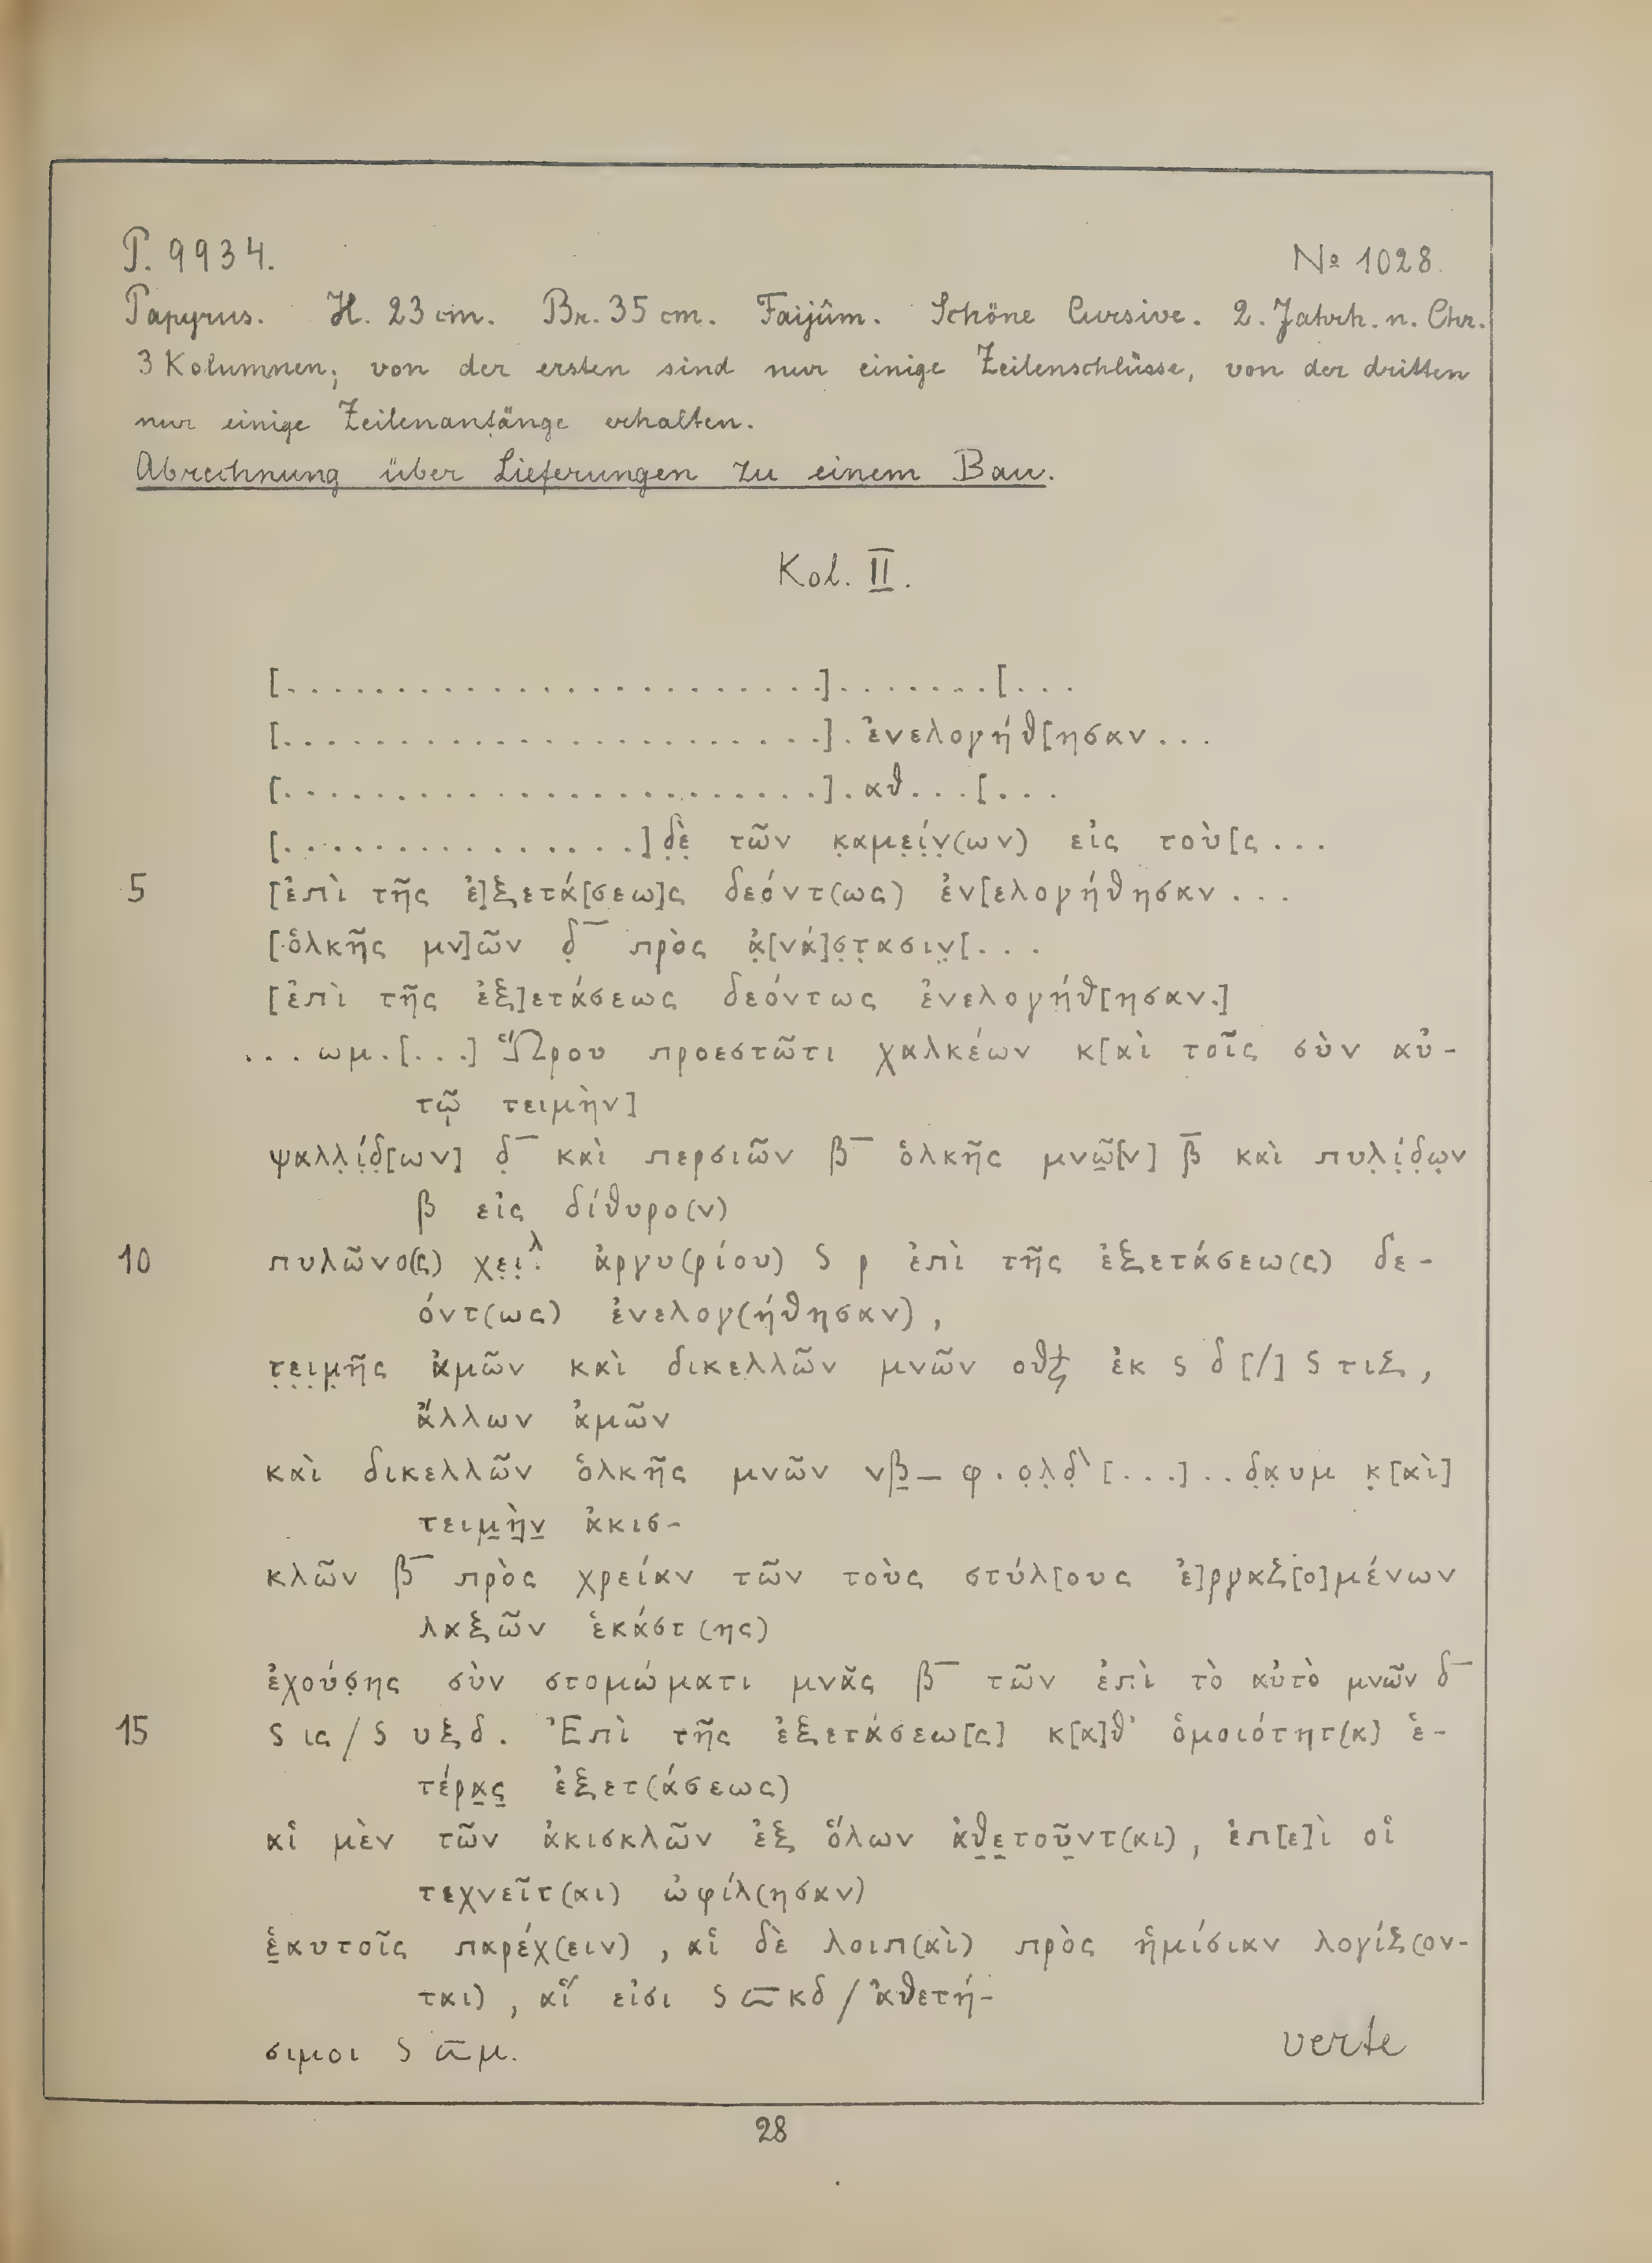 P. 9934. № 1028.
Papyrus. H. 23 cm. Br. 35 cm. Faijûm. Schöne Cursive. 2. Jahrh. n. Chr.
3 Kolumnen; von der ersten sind nur einige Zeilenschlüsse, von der dritten
nur einige Zeilenanfänge erhalten.
Abrechnung über Lieferungen zu einem Bau.
Kol. II.
[........................].......[...
[........................]. ἐνελογήθ[ησαν...
[........................]. αθ...[...
[................]δ̣ὲ̣ τῶν κ̣αμε̣ί̣ν̣(ων) εἰς τοὺ[ς...
5 [ἐπὶ τῆς ἐ]ξετά[σεω]ς δεόντ(ως) ἐν[ελογήθησαν...
[ὁλκῆς μν]ῶν δ̣‾ πρὸς ἀ̣[νά]σ̣τ̣ασιν̣[...
[ἐπὶ τῆς ἐξ]ετάσεως δεόντως ἐνελογήθ[ησαν.]
...ωμ.[...] Ὥρου προεστῶτι χαλκέων κ[αὶ τοῖς σὺν αὐ-
τῷ τειμὴν]
ψαλλ̣ί̣δ̣[ων] δ̣‾ καὶ περσιῶν β‾ ὁλκῆς μνῶ̣[ν] β̅ καὶ πυλ̣ί̣δ̣ω̣ν
β εἰς δίθυρο(ν)
10 πυλῶνο(ς) χε̣ι̣.λ ἀργυ(ρίου) S ρ ἐπὶ τῆς ἐξετάσεω(ς) δε-
όντ(ως) ἐνελογ(ήθησαν),
τ̣ε̣ι̣μ̣ῆς ἀμῶν καὶ δικελλῶν μνῶν οθ ἐκ S δ[/] S τιξ,
ἄλλων ἀμῶν
καὶ δικελλῶν ὁλκῆς μνῶν νβ̣– φ.ο̣λ̣δ̣\[...]..δ̣α̣υμ κ̣[αὶ]
τειμ̣ὴ̣ν̣ ἀκισ-
κλῶν β‾ πρὸς χρείαν τῶν τοὺς στύλ[ους ἐ]ργαζ[ο]μένων
λαξῶν ἑκάστ(ης)
ἐχούσ̣ης σὺν στομώματι μνᾶς β‾ τῶν ἐπὶ τὸ αὐτὸ μνῶν δ‾
15 S ις / S υξδ. Ἐπὶ τῆς ἐξετάσεω[ς] κ[α]θ’ ὁμοιότητ(α) ἑ-
τέρα̣ς̣ ἐξετ(άσεως)
αἱ μὲν τῶν ἀκισκλῶν ἐξ ὅλων ἀθ̣ε̣τοῦ̣ντ(αι), ἐπ[ε]ὶ οἱ
τεχνεῖτ(αι) ὠφίλ(ησαν)
ἑ̣αυτοῖς παρέχ(ειν), αἱ δὲ λοιπ(αὶ) πρὸς ἡμίσιαν λογίζ(ον-
ται), αἵ εἰσι S ϖ κδ / ἀθετή-
σιμοι S ϖ μ.
verte
28